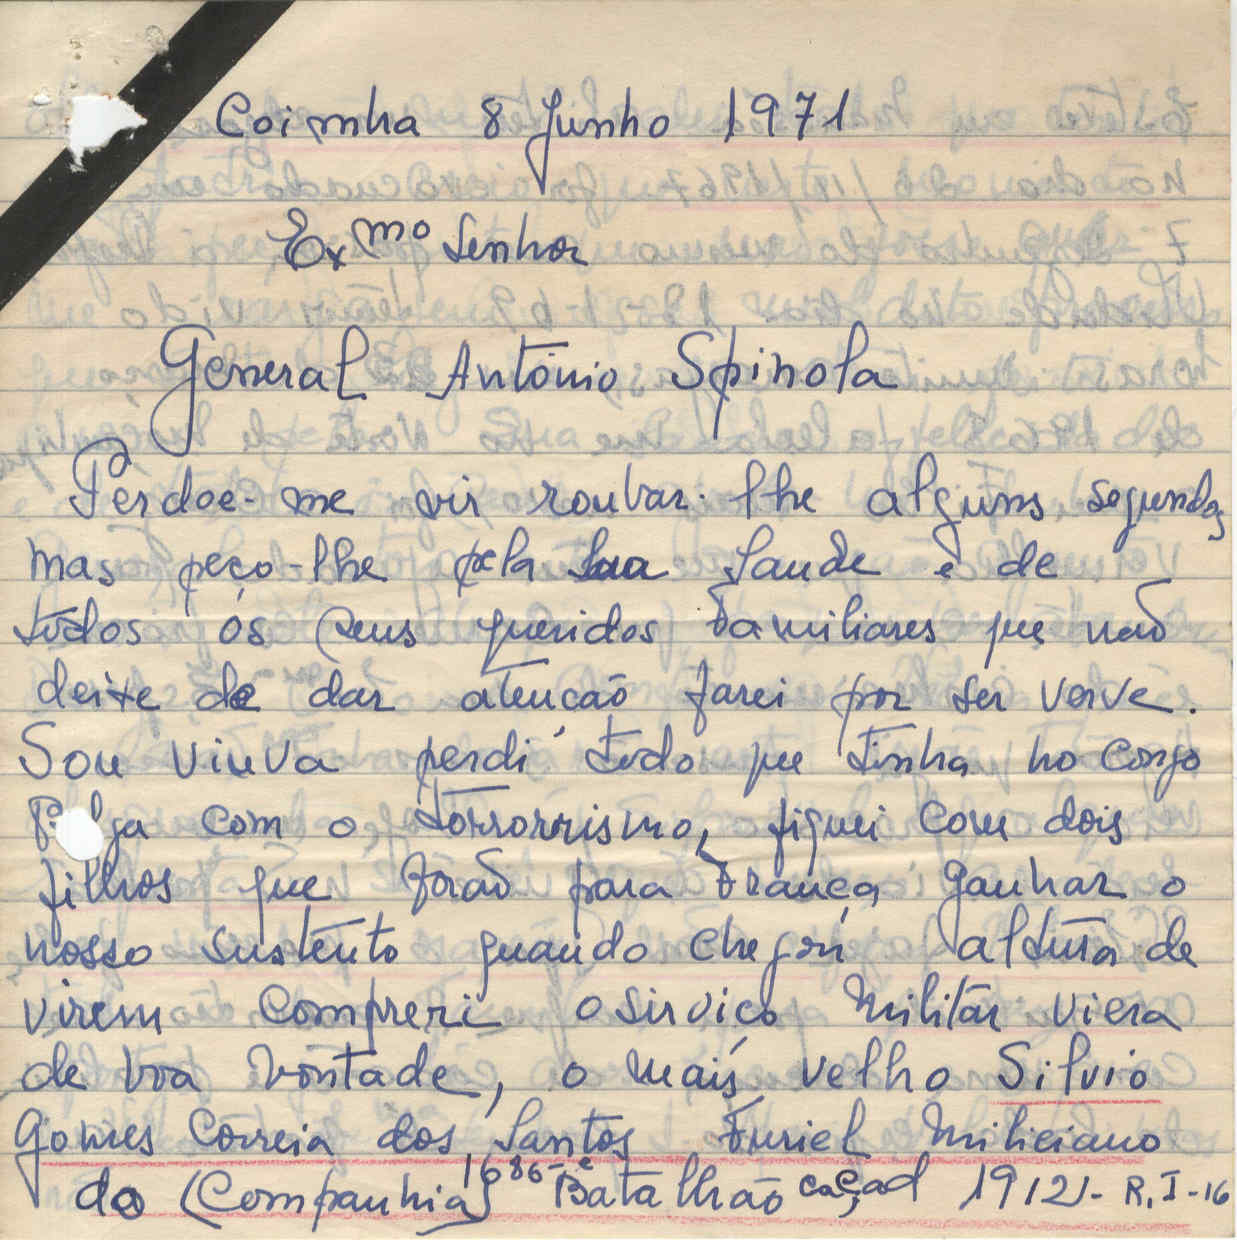 Coimnha 8 Junho 1971
Exmo Senhor
General António Spinola
Perdoe-me vir roubar-lhe alguns segundos
mas peço-lhe pela Sua Saude e de
todos ós Seus queridos Familiares que não
deixe de dar atencão farei por ser verve.
Sou viuva perdi tudo que tinha no Congo
com o torrorrismo, fiquei com dois
filhos que forão para França ganhar o
nosso sustento quando chegou altura de
virem compreri o sirviço Militar viera
de boa vontade, o mais velho Silvio
Gomes Correia dos Santos Furriel Miliciano
da (Companhia) 1686-e Batalhão caçad 1912- R.I-16